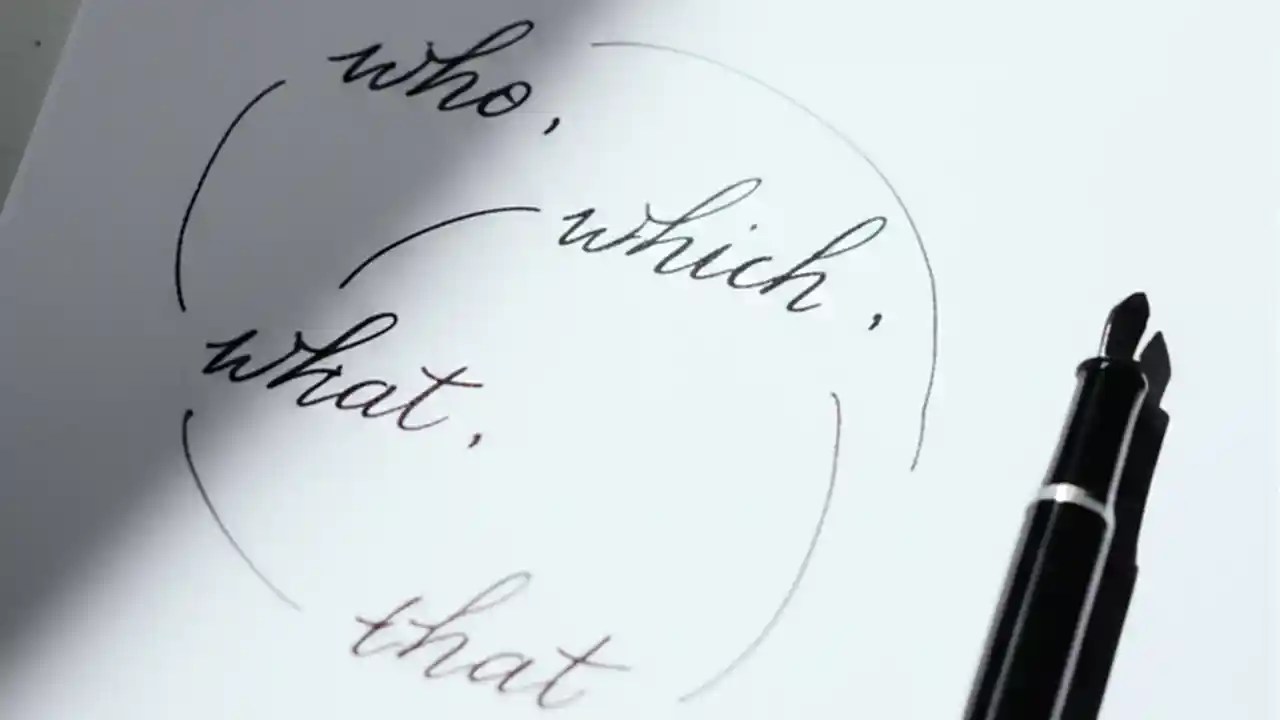 who,
which,
what,
that